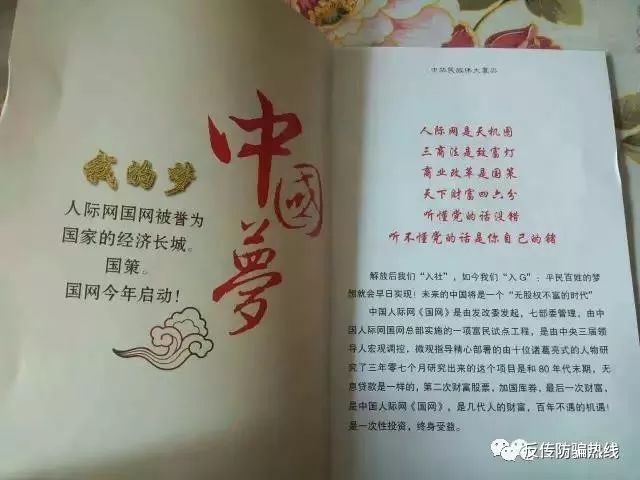 我的梦
中國夢
人际网国网被誉为
国家的经济长城。
国策。
国网今年启动！
中华民族伟大复兴
人际网是天机图
三商法是致富灯
商业改革是国策
天下财富四六分
听懂党的话没错
听不懂党的话是你自己的错
解放后我们“入社”，如今我们“入G”：平民百姓的梦
想就会早日实现！未来的中国将是一个“无股权不富的时代”
中国人际网《国网》是由发改委发起，七部委管理，由中
国人际网国网总部实施的一项富民试点工程，是由中央三届领
导人宏观调控，微观指导精心部署的由十位诸葛亮式的人物研
究了三年零七个月研究出来的这个项目是和80年代末期，无
息贷款是一样的，第二次财富股票，加国库券，最后一次财富，
是中国人际网《国网》，是几代人的财富，百年不遇的机遇！
是一次性投资，终身受益。
反传防骗热线